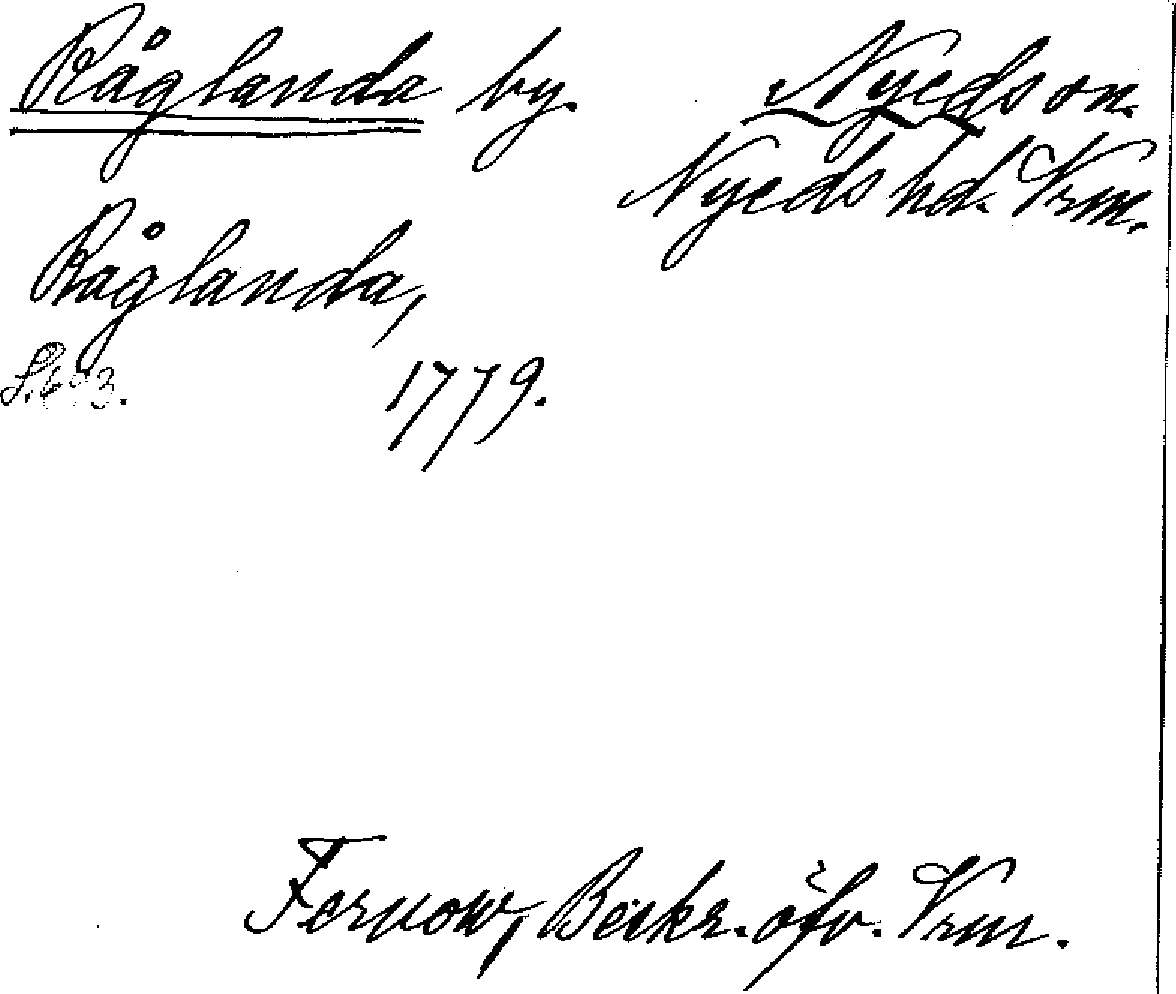 Råglanda by. Nyeds sn.
Nyeds hd. Vrm.
Råglanda,
1779.
Fernow, Beskr. öfv. Vrm.